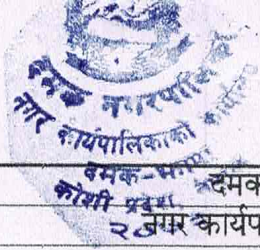 दमक नगरपालिका
नगर कार्यपालिकाको कार्यालय
दमक-झापा
कोशी प्रदेश
दमक
नगर कार्यप